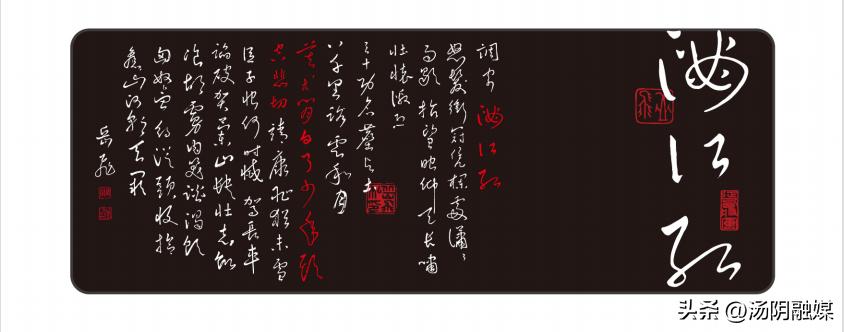 满江红
调寄 满江红
怒髮衝冠凭栏处潇潇
雨歇抬望眼仰天长啸
壮怀激烈
三十功名尘与土
八千里路云和月
莫等闲白了少年头
空悲切靖康耻犹未雪
臣子恨何时灭驾长车
踏破贺兰山缺壮志饥
餐胡虏肉笑谈渴饮
匈奴血待从头收拾
旧山河朝天阙
岳飞
头条 @汤阴融媒